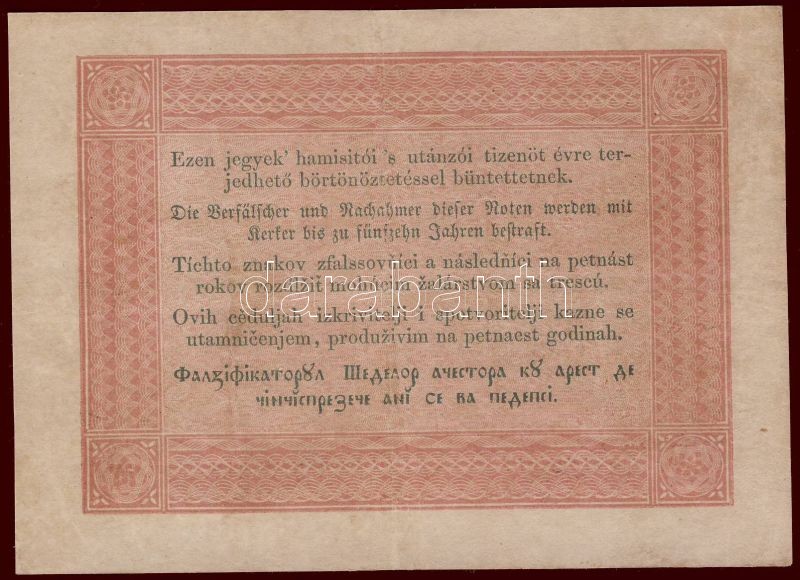 Ezen jegyek' hamisitói 's utánzói tizenöt évre ter-
jedhető börtönöztetéssel büntettetnek.
Die Verfälscher und Nachahmer dieser Noten werden mit
Kerker bis zu fünfzehn Jahren bestraft.
Tíchto znakov zfalssovňíci a následňíci na petnást
rokov rozdlžiť mohúcím žalárstvom sa trescú.
Ovih cèduljah izkrivitelji i apotvoritelji kazne se
utamničenjem, produživim na petnaest godinah.
Фалꙁіфікаторꙋл Шеделор ачестора кꙋ арест де
чінчіспрезече ані се ва педепсі.
darabanth